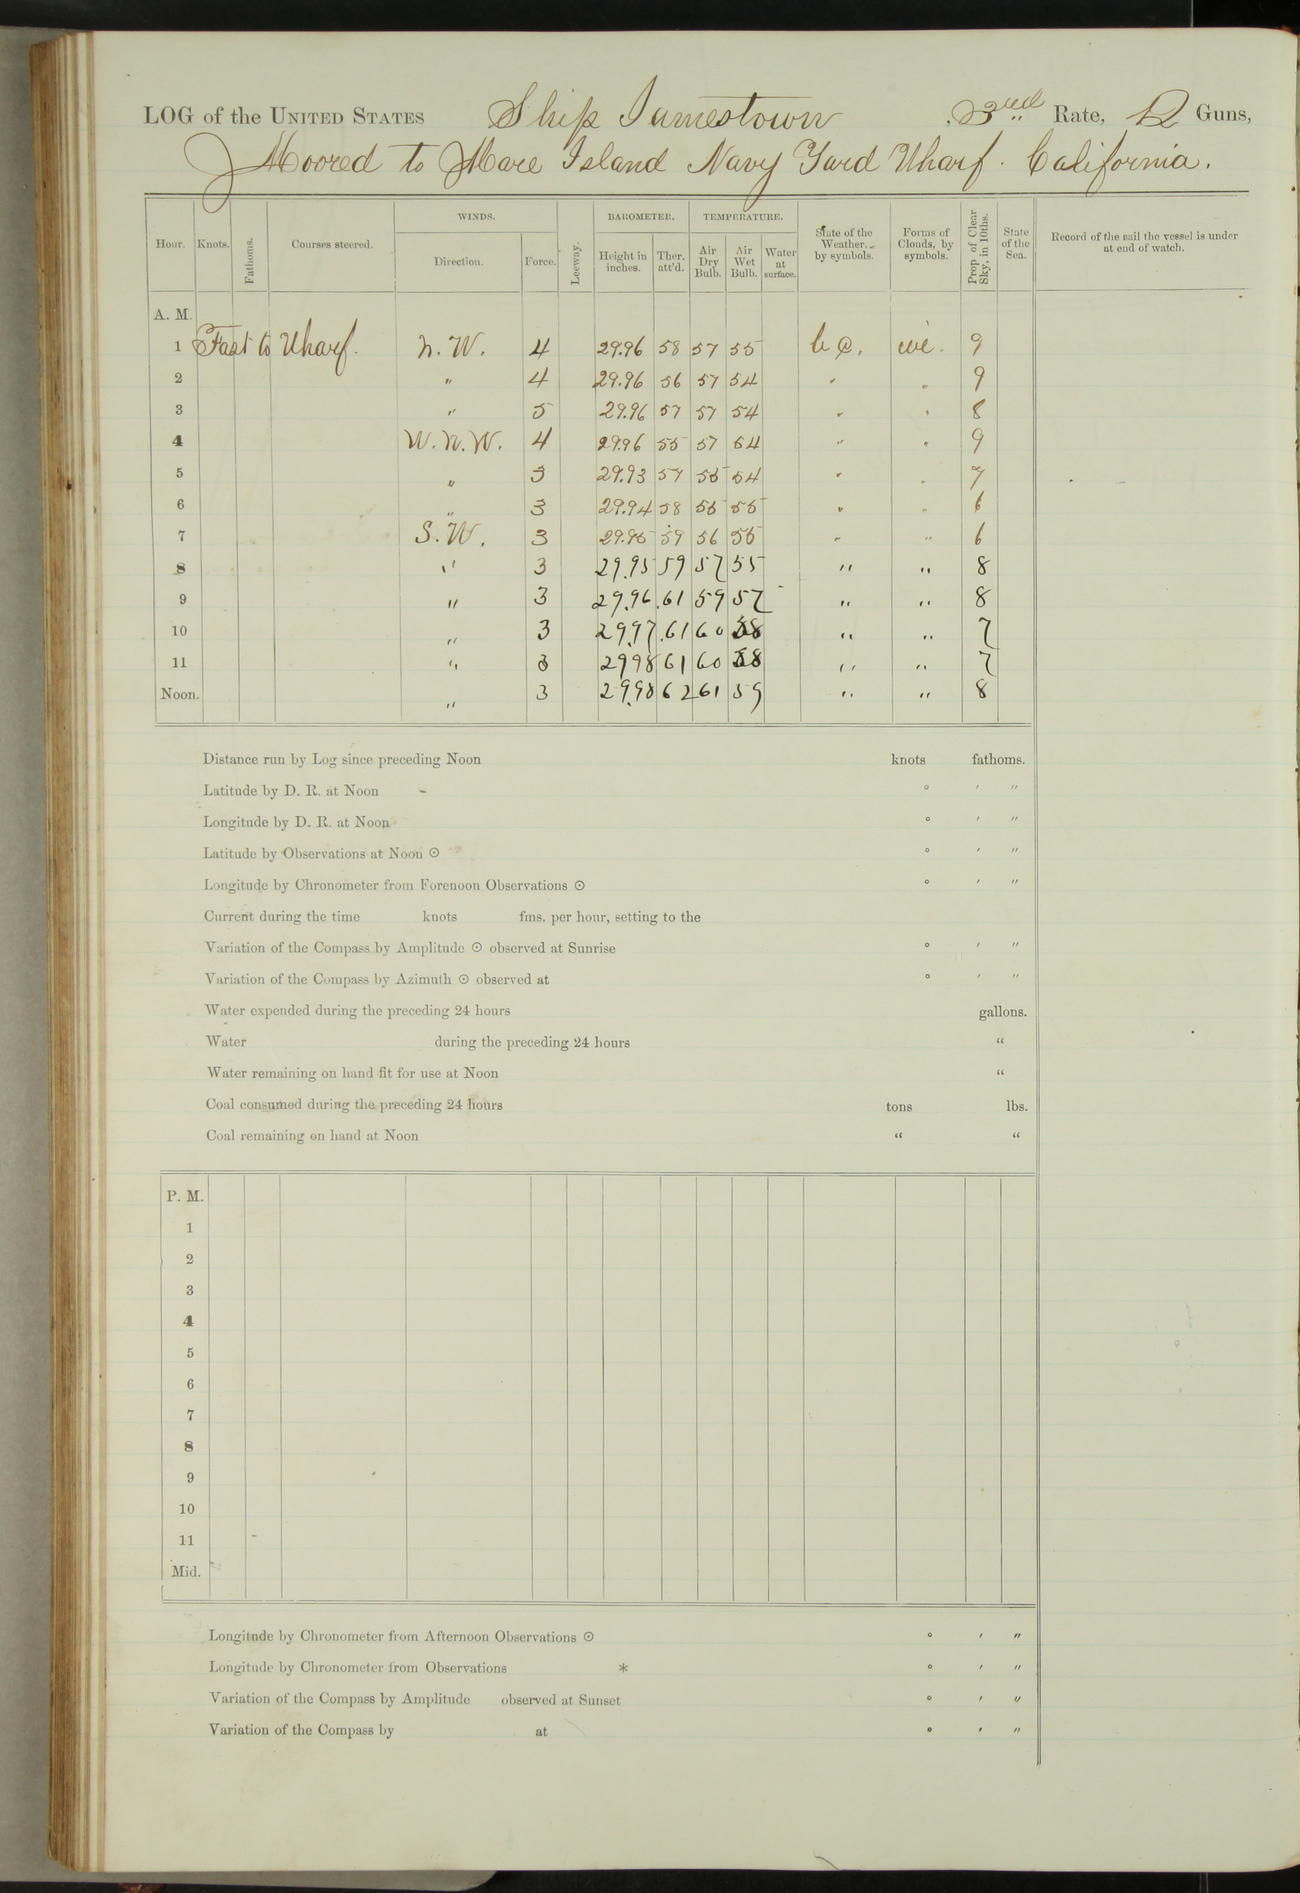 LOG of the UNITED STATES Ship Jamestown, 3rd Rate, 12 Guns,
Moored to Mare Island Navy Yard Wharf. California.
WINDS. BAROMETER. TEMPERATURE.
Hour. Knots. Fathoms. Courses steered. Direction. Force. Leeway. Height in inches. Ther. att'd. Air Dry Bulb. Air Wet Bulb. Water at surface. State of the Weather, by symbols. Forms of Clouds, by symbols. Prop of Clear Sky, in 10ths. State of the Sea. Record of the sail the vessel is under at end of watch.
A. M.
1 Fast to Wharf. N. W. 4 29.96 58 57 55 b c. 9
2 " 4 29.96 56 57 54 " " 9
3 " 5 29.96 57 57 54 " " 8
4 W. N. W. 4 29.96 55 57 54 " " 9
5 " 3 29.93 57 55 54 " " 7
6 " 3 29.94 58 55 55 " " 6
7 S. W. 3 29.95 59 56 55 " " 6
8 " 3 29.95 59 57 55 " " 8
9 " 3 29.96 61 59 57 " " 8
10 " 3 29.97 61 60 58 " " 7
11 " 3 29.98 61 60 58 " " 7
Noon. " 3 29.98 62 61 59 " " 8
Distance run by Log since preceding Noon knots fathoms.
Latitude by D. R. at Noon ° ′ ″
Longitude by D. R. at Noon ° ′ ″
Latitude by Observations at Noon ⊙ ° ′ ″
Longitude by Chronometer from Forenoon Observations ⊙ ° ′ ″
Current during the time knots fms. per hour, setting to the
Variation of the Compass by Amplitude ⊙ observed at Sunrise ° ′ ″
Variation of the Compass by Azimuth ⊙ observed at ° ′ ″
Water expended during the preceding 24 hours gallons.
Water during the preceding 24 hours "
Water remaining on hand fit for use at Noon "
Coal consumed during the preceding 24 hours tons lbs.
Coal remaining on hand at Noon " "
P. M.
1
2
3
4
5
6
7
8
9
10
11
Mid.
Longitude by Chronometer from Afternoon Observations ⊙ ° ′ ″
Longitude by Chronometer from Observations * ° ′ ″
Variation of the Compass by Amplitude observed at Sunset ° ′ ″
Variation of the Compass by at ° ′ ″